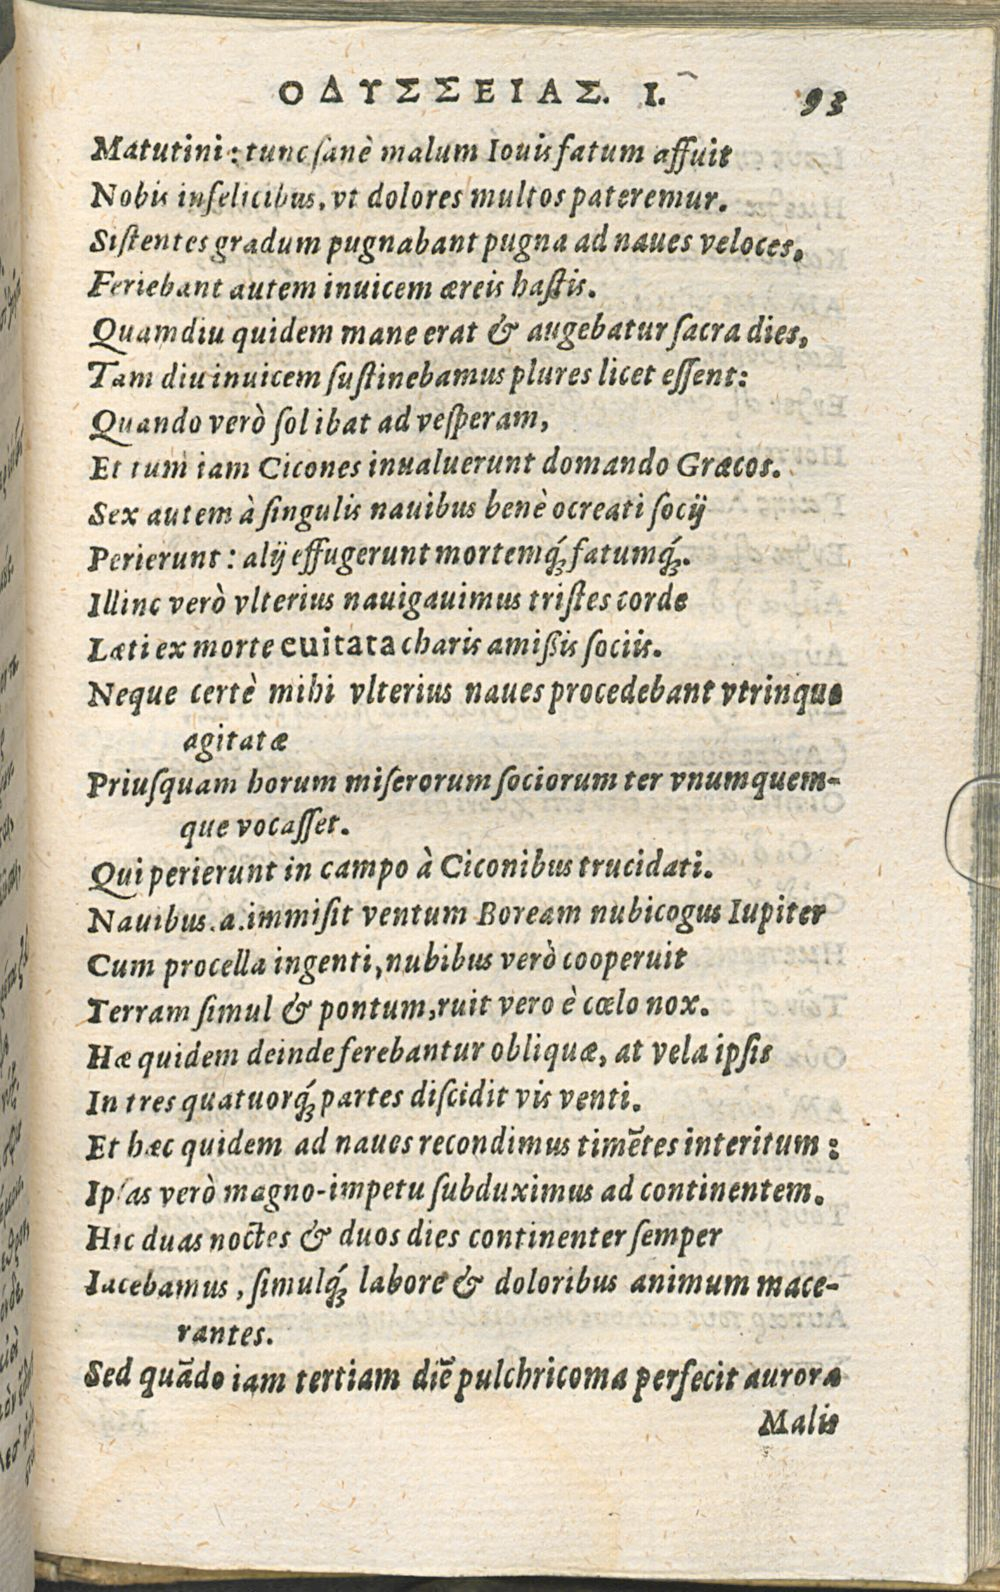 ΟΔΥΣΣΕΙΑΣ. I. 93
Matutini: tunc sanè malum Iouis fatum affuit
Nobis infelicibus, vt dolores multos pateremur.
Sistentes gradum pugnabant pugna ad naues veloces,
Feriebant autem inuicem æreis hastis.
Quamdiu quidem mane erat & augebatur sacra dies,
Tam diu inuicem sustinebamus plures licet essent:
Quando verò sol ibat ad vesperam,
Et tum iam Cicones inualuerunt domando Græcos.
Sex autem à singulis nauibus benè ocreati socij
Perierunt: alij effugerunt mortemq́; fatumq́;.
Illinc verò vlterius nauigauimus tristes corde
Læti ex morte euitata charis amißis sociis.
Neque certè mihi vlterius naues procedebant vtrinque
agitatæ
Priusquam horum miserorum sociorum ter vnumquem-
que vocasset.
Qui perierunt in campo à Ciconibus trucidati.
Nauibus .a. immisit ventum Boream nubicogus Iupiter
Cum procella ingenti, nubibus verò cooperuit
Terram simul & pontum, ruit vero è cœlo nox.
Hæ quidem deinde ferebantur obliquæ, at vela ipsis
In tres quatuorq́; partes discidit vis venti.
Et hæc quidem ad naues recondimus timẽtes interitum:
Ipsas verò magno-impetu subduximus ad continentem.
Hic duas noctes & duos dies continenter semper
Iacebamus, simulq́; labore & doloribus animum mace-
rantes.
Sed quãdo iam tertiam diẽ pulchricoma perfecit aurora
Malis